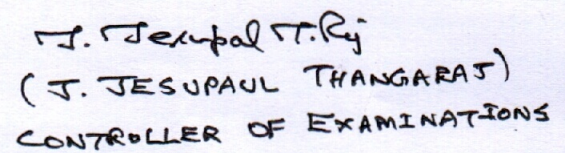 J. Jesupal T. Rj
(J. JESUPAUL THANGARAJ)
CONTROLLER OF EXAMINATIONS